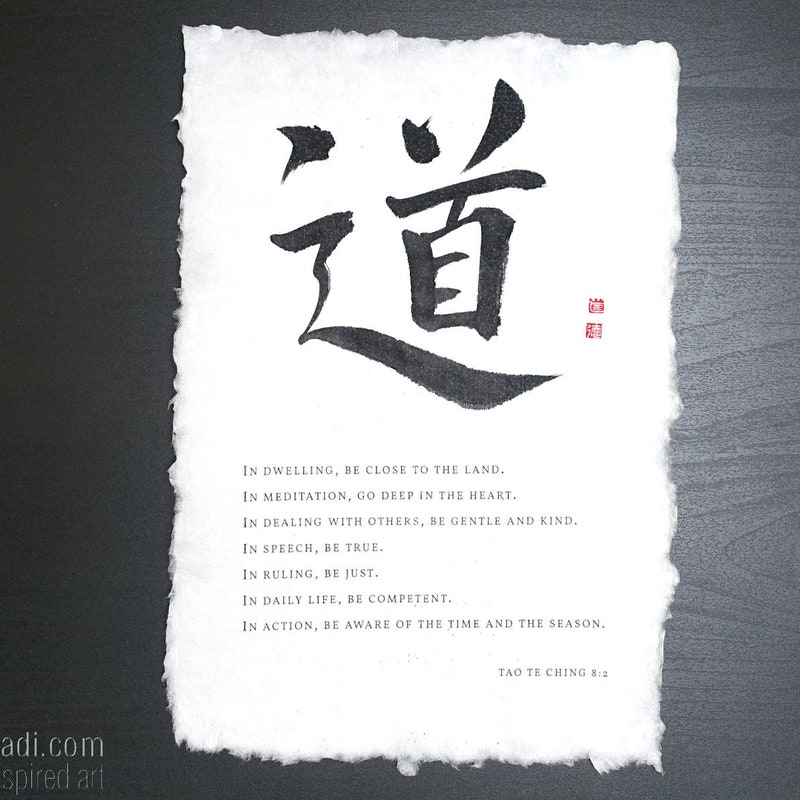 道
道
德
In dwelling, be close to the land.
In meditation, go deep in the heart.
In dealing with others, be gentle and kind.
In speech, be true.
In ruling, be just.
In daily life, be competent.
In action, be aware of the time and the season.
Tao Te Ching 8:2
adi.com
spired art